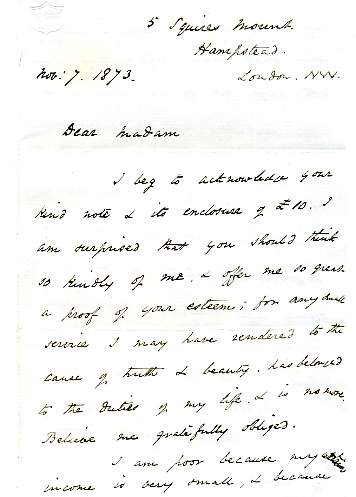 5 Squires Mount
Hampstead.
Nov: 7. 1873.
London. NW.
Dear Madam
I beg to acknowledge your
kind note & its enclosure of £10. I
am surprised that you should think
so kindly of me, & offer me so great
a proof of your esteem; for any such
service I may have rendered to the
cause of truth & beauty, has belonged
to the duties of my life, & is no more.
Believe me gratefully obliged.
I am poor because my
income is very small, & because